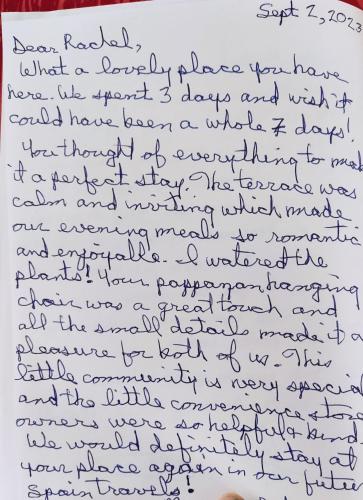 Sept 2, 2023
Dear Rachel,
What a lovely place you have
here. We spent 3 days and wish it
could have been a whole 7 days!
You thought of everything to mak
it a perfect stay. The terrace was
calm and inviting which made
our evening meals so romantic
and enjoyable. I watered the
plants! Your pappazan hanging
chair was a great touch and
all the small details made it a
pleasure for both of us. This
little community is very special
and the little convenience store
owners were so helpful & kind
We would definitely stay at
your place again in our future
Spain travels!